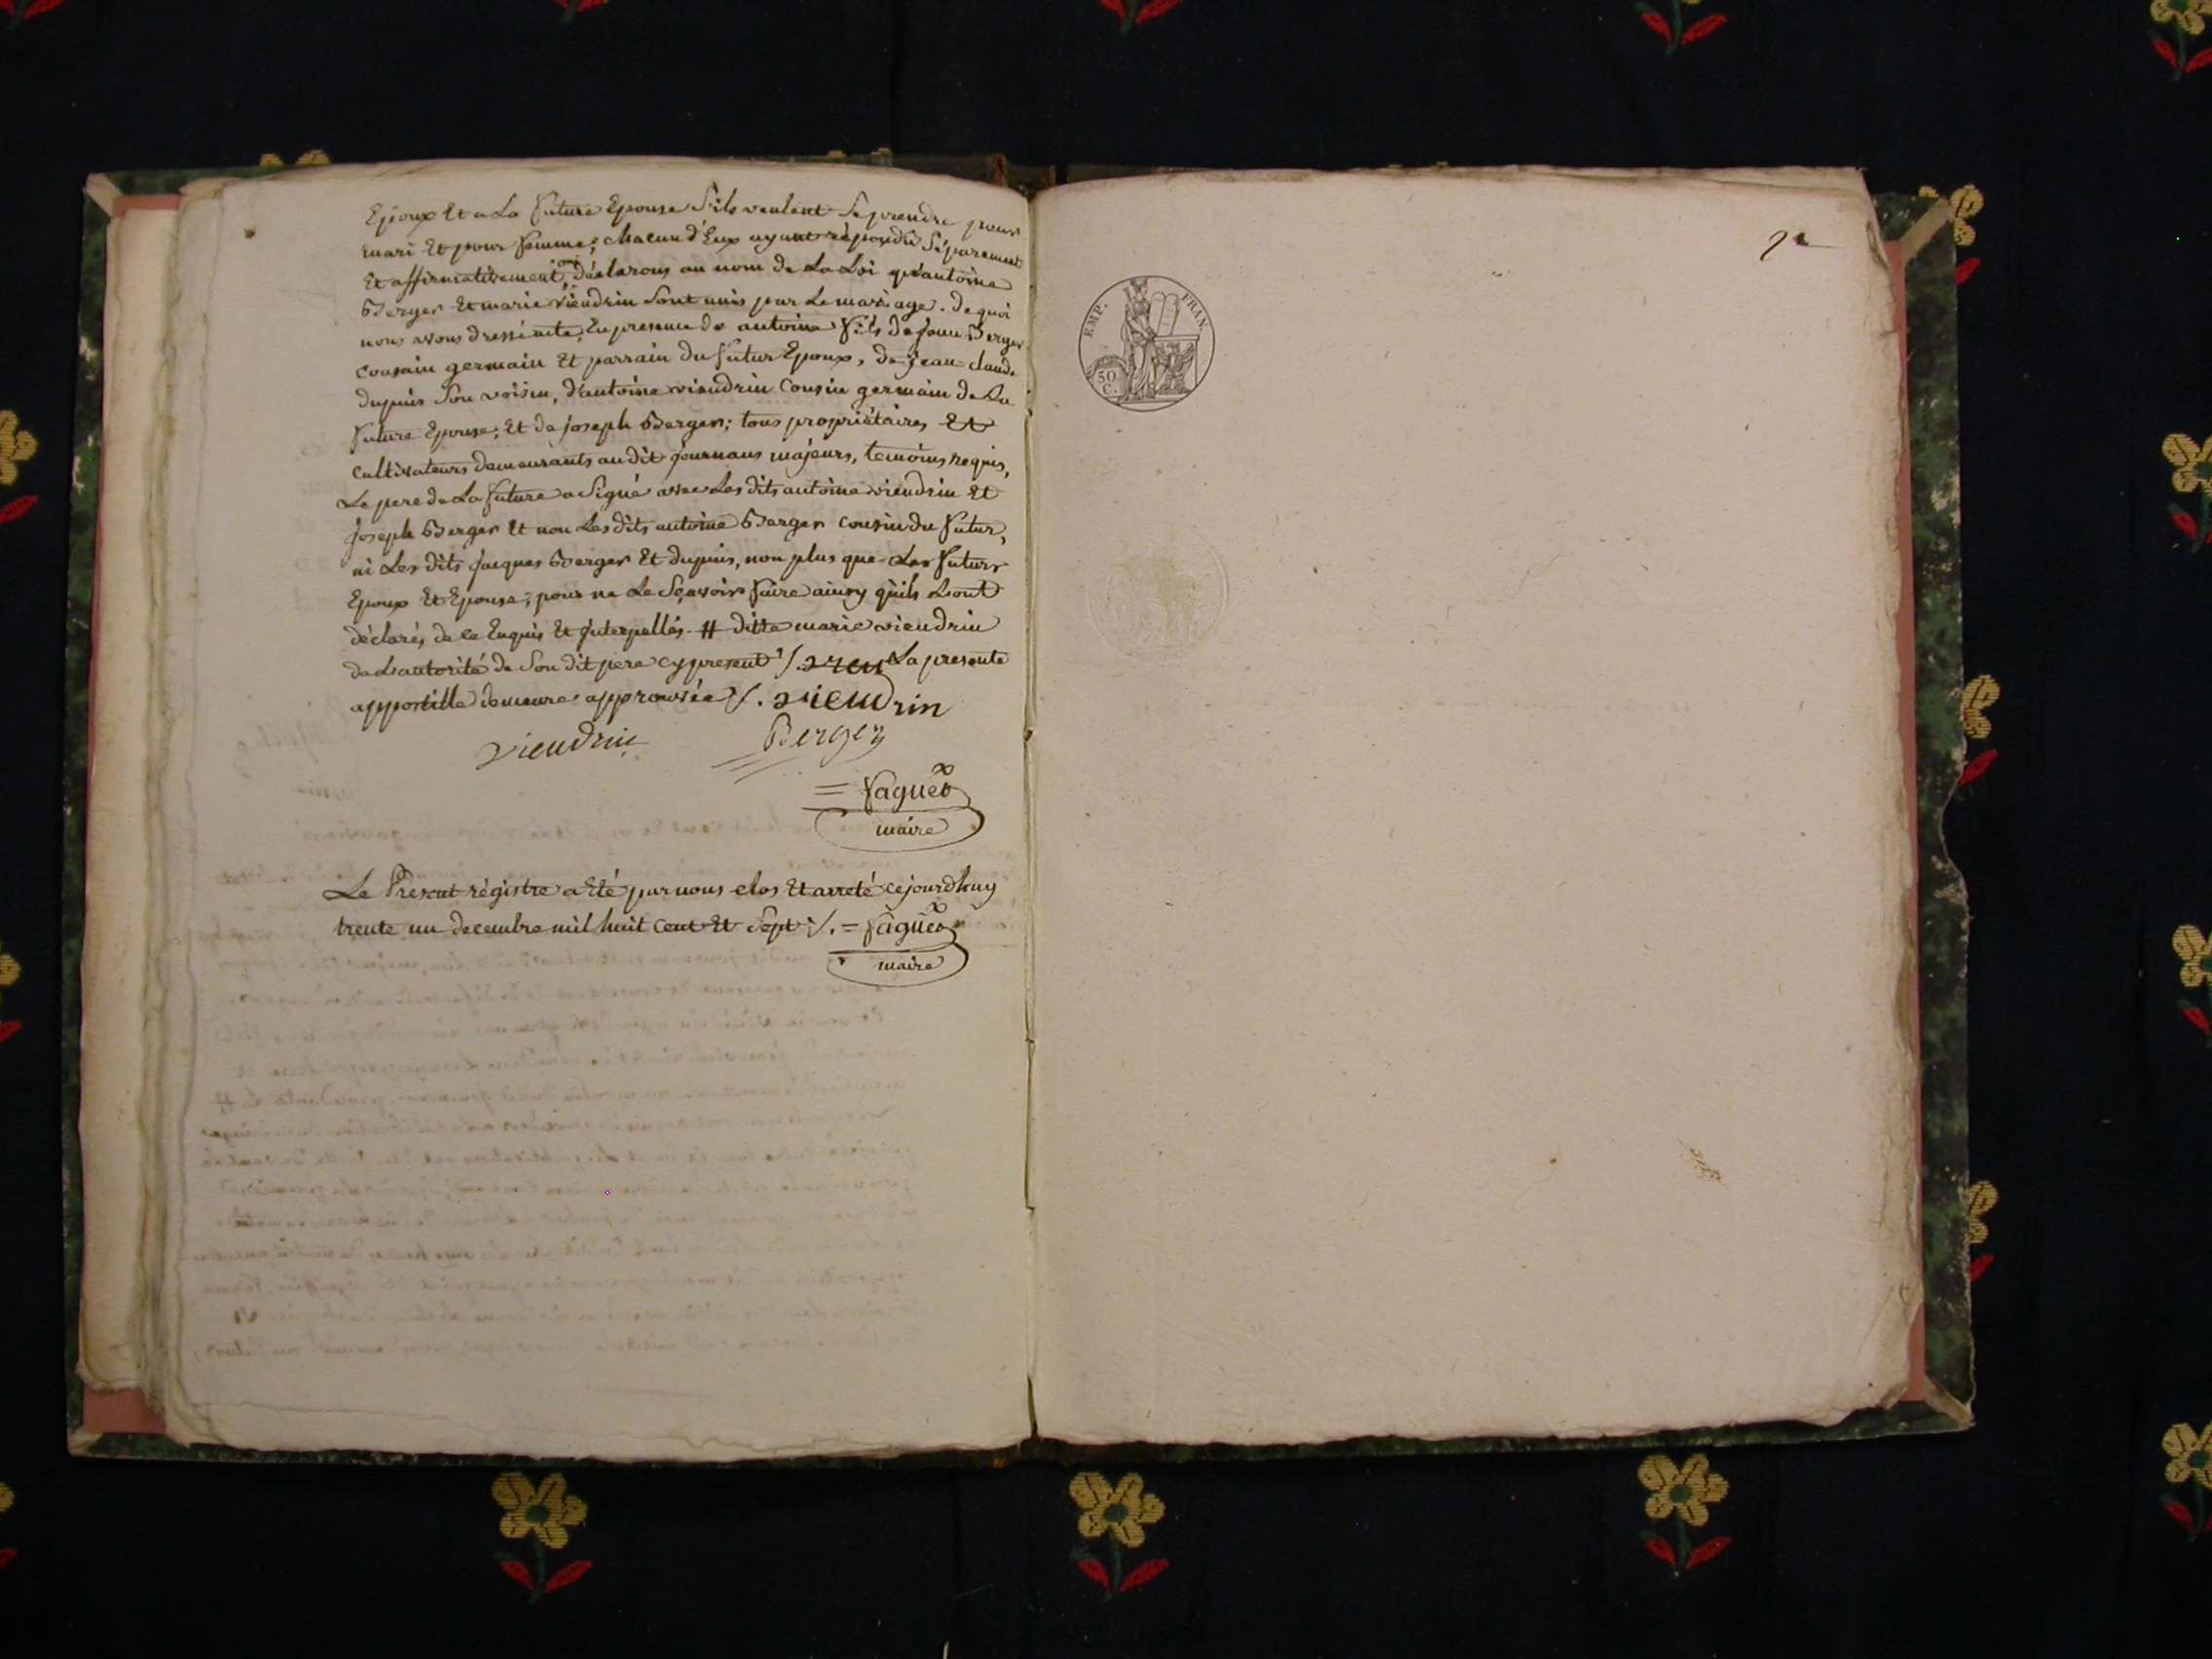 Epoux Et a La future Epouse S'ils veulent Se prendre pour
mari Et pour femme; chacun d'Eux ayant répondu Séparement
Et affirmativement oui, déclarons au nom de La Loi qu'antoine
Berger Et marie viendrin Sont unis par Le mariage. de quoi
nous avons dressé acte, En presence de antoine fils de Berger
cousin germain Et parrain du futur Epoux, de Jean claude
dupuis Son voisin, d'antoine viendrin Cousin germain de La
future Epouse; Et de joseph Berger; tous propriétaires Et
cultivateurs demeurants au dit Journans majeurs, temoins requis,
Le pere de La future a Signé avec Les dits antoine viendrin Et
joseph Berger Et non Les dits antoine Berger cousin du futur,
ni Les dits jacques Berger Et dupuis, non plus que Les futurs
Epoux Et Epouse; pour ne Le Sçavoir faire ainsy qu'ils L'ont
déclarés de ce Enquis Et Interpellés. # ditte marie viendrin
de L'autorité de Son dit pere cy present /. La presente
appostille demeure approuvée /. viendrin
viendrin Berger
= faguet
maire
Le Present régistre a Eté par nous clos Et arreté cejourdhuy
trente un decembre mil huit cent Et Sept /. = faguet
maire
EMP. FRAN.
50
C.